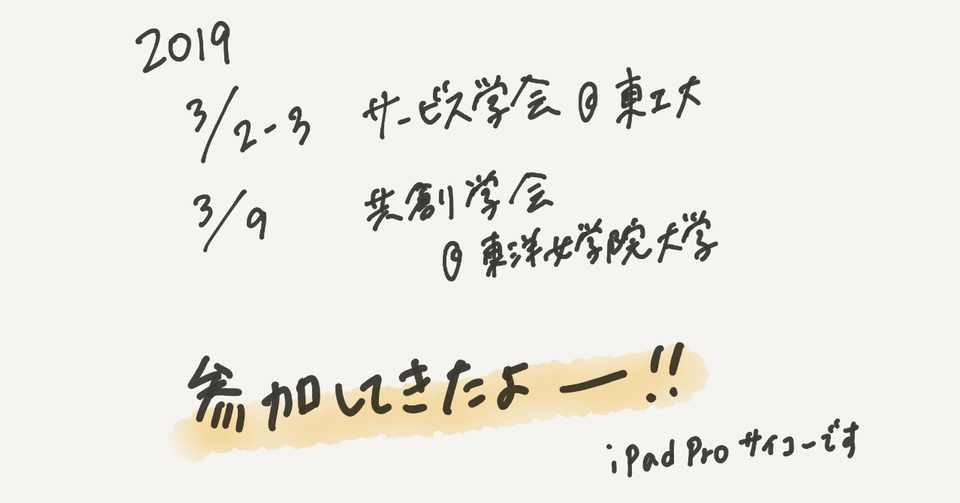 2019
3/2-3 サービス学会@東工大
3/9 共創学会
@東洋女学院大学
参加してきたよー!!
iPad Pro サイコーです